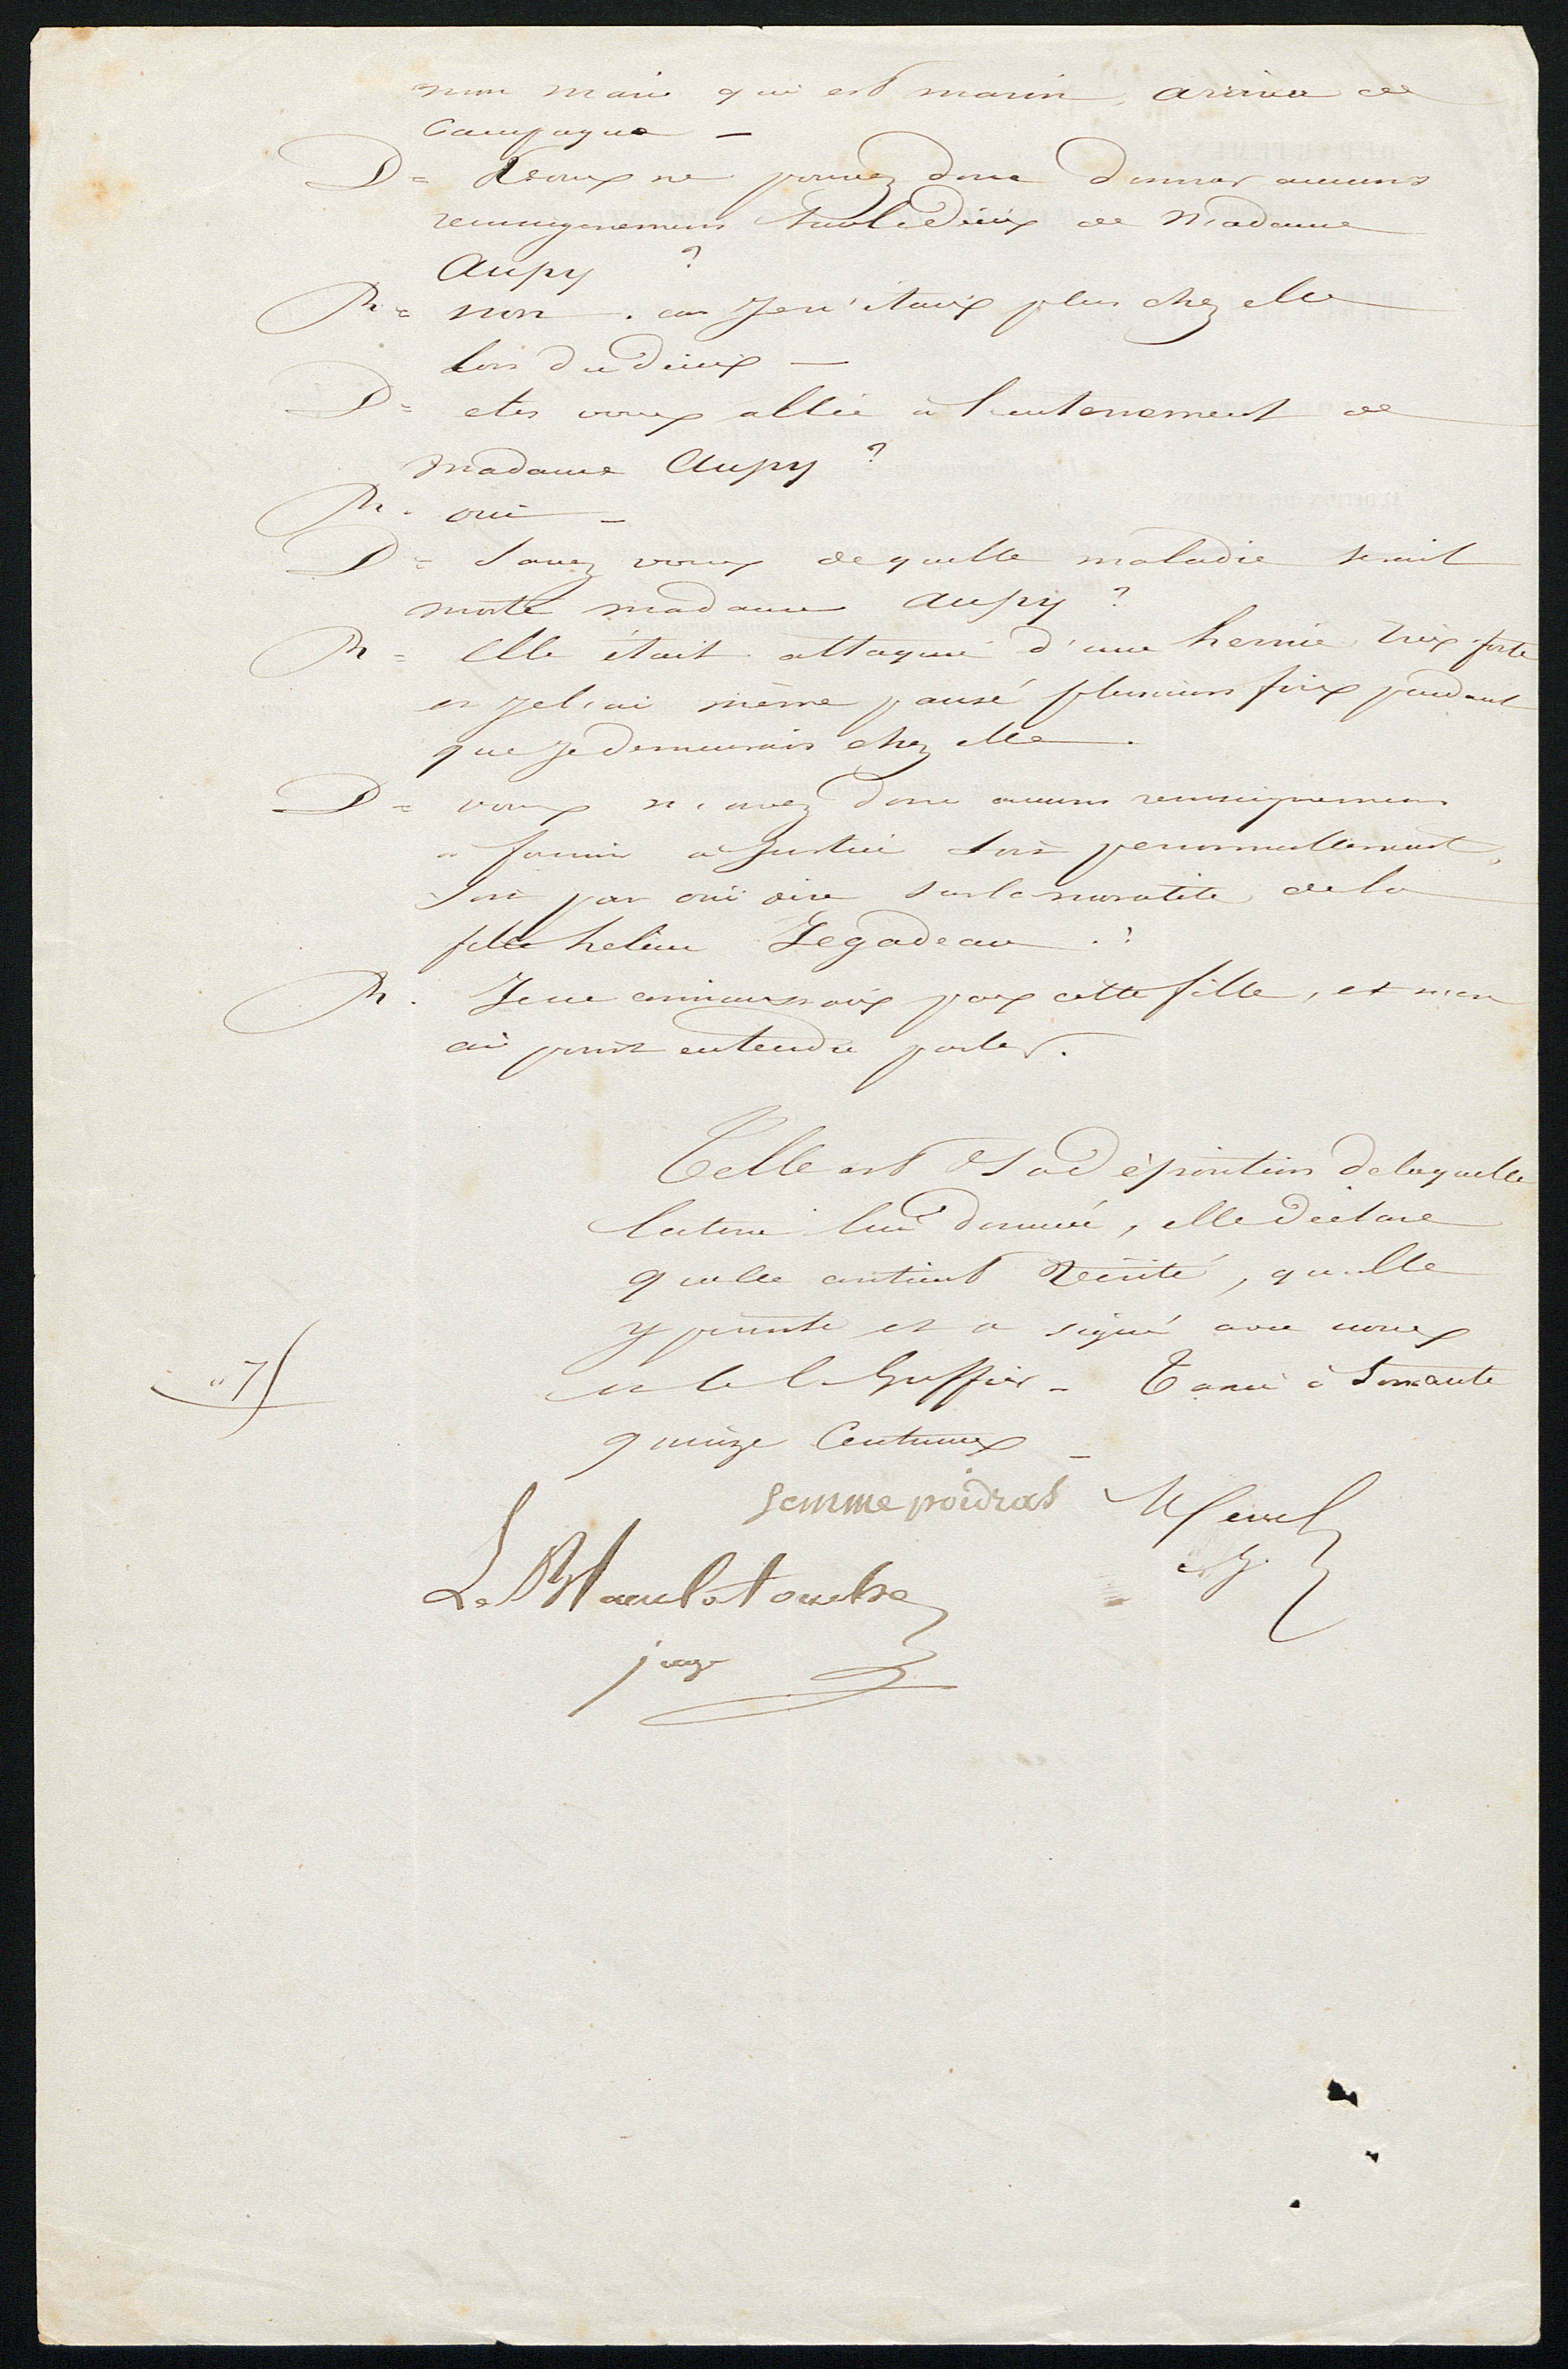 mon mari qui est marin, arriva de
Campagne —
D = Vous ne pouvez donc donner aucuns
renseignemens sur le décès de Madame
Aupy ?
R = non. car Je n'étais plus chez elle
lors du décès —
D = etes vous allée à l'enterrement de
madame Aupy ?
R. oui —
D = Savez vous de quelle maladie serait
morte madame Aupy ?
R = Elle était attaquée d'une hernie très forte
et Je l'ai même pansé plusieurs fois pendant
que Je demeurais chez elle.
D = vous n'avez donc aucuns renseignemens
a fournir à Justice soit personnellement,
soit par ouï dire sur la moralité de la
fille helène Jegadeau. ?
R. Je ne connaissais pas cette fille, et n'en
ai point entendu parler.
Telle est Sa déposition de laquelle
lecture lui donnée, elle déclare
qu'elle contient Vérité, qu'elle
y persiste et a signé avec nous
et le Greffier — Taxé à Soixante
quinze Centimes —
"75
femme poidras
Le Blanc Latouche
juge